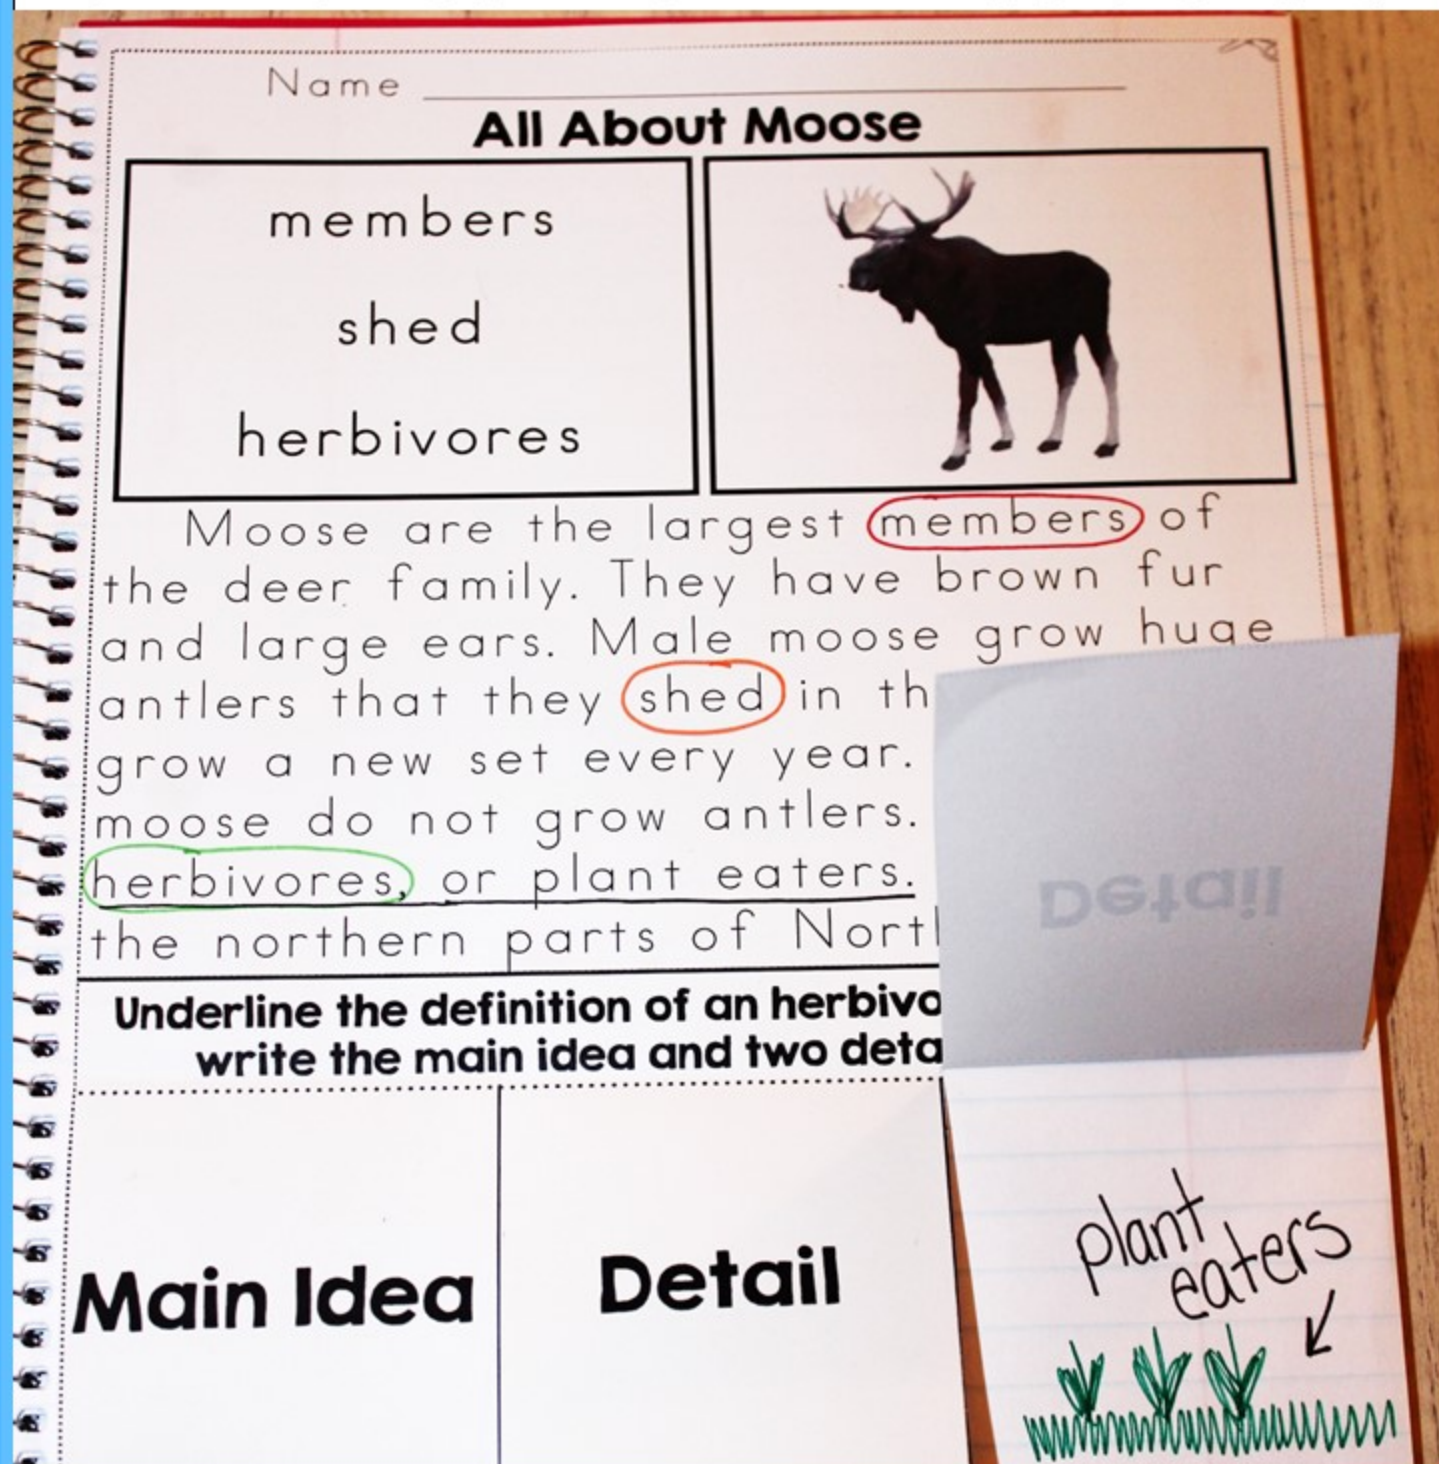 Name
All About Moose
members
shed
herbivores
Moose are the largest members of
the deer family. They have brown fur
and large ears. Male moose grow huge
antlers that they shed in th
grow a new set every year.
moose do not grow antlers.
herbivores, or plant eaters.
the northern parts of Nort
Underline the definition of an herbivo
write the main idea and two deta
Main Idea
Detail
Detail
plant
eaters